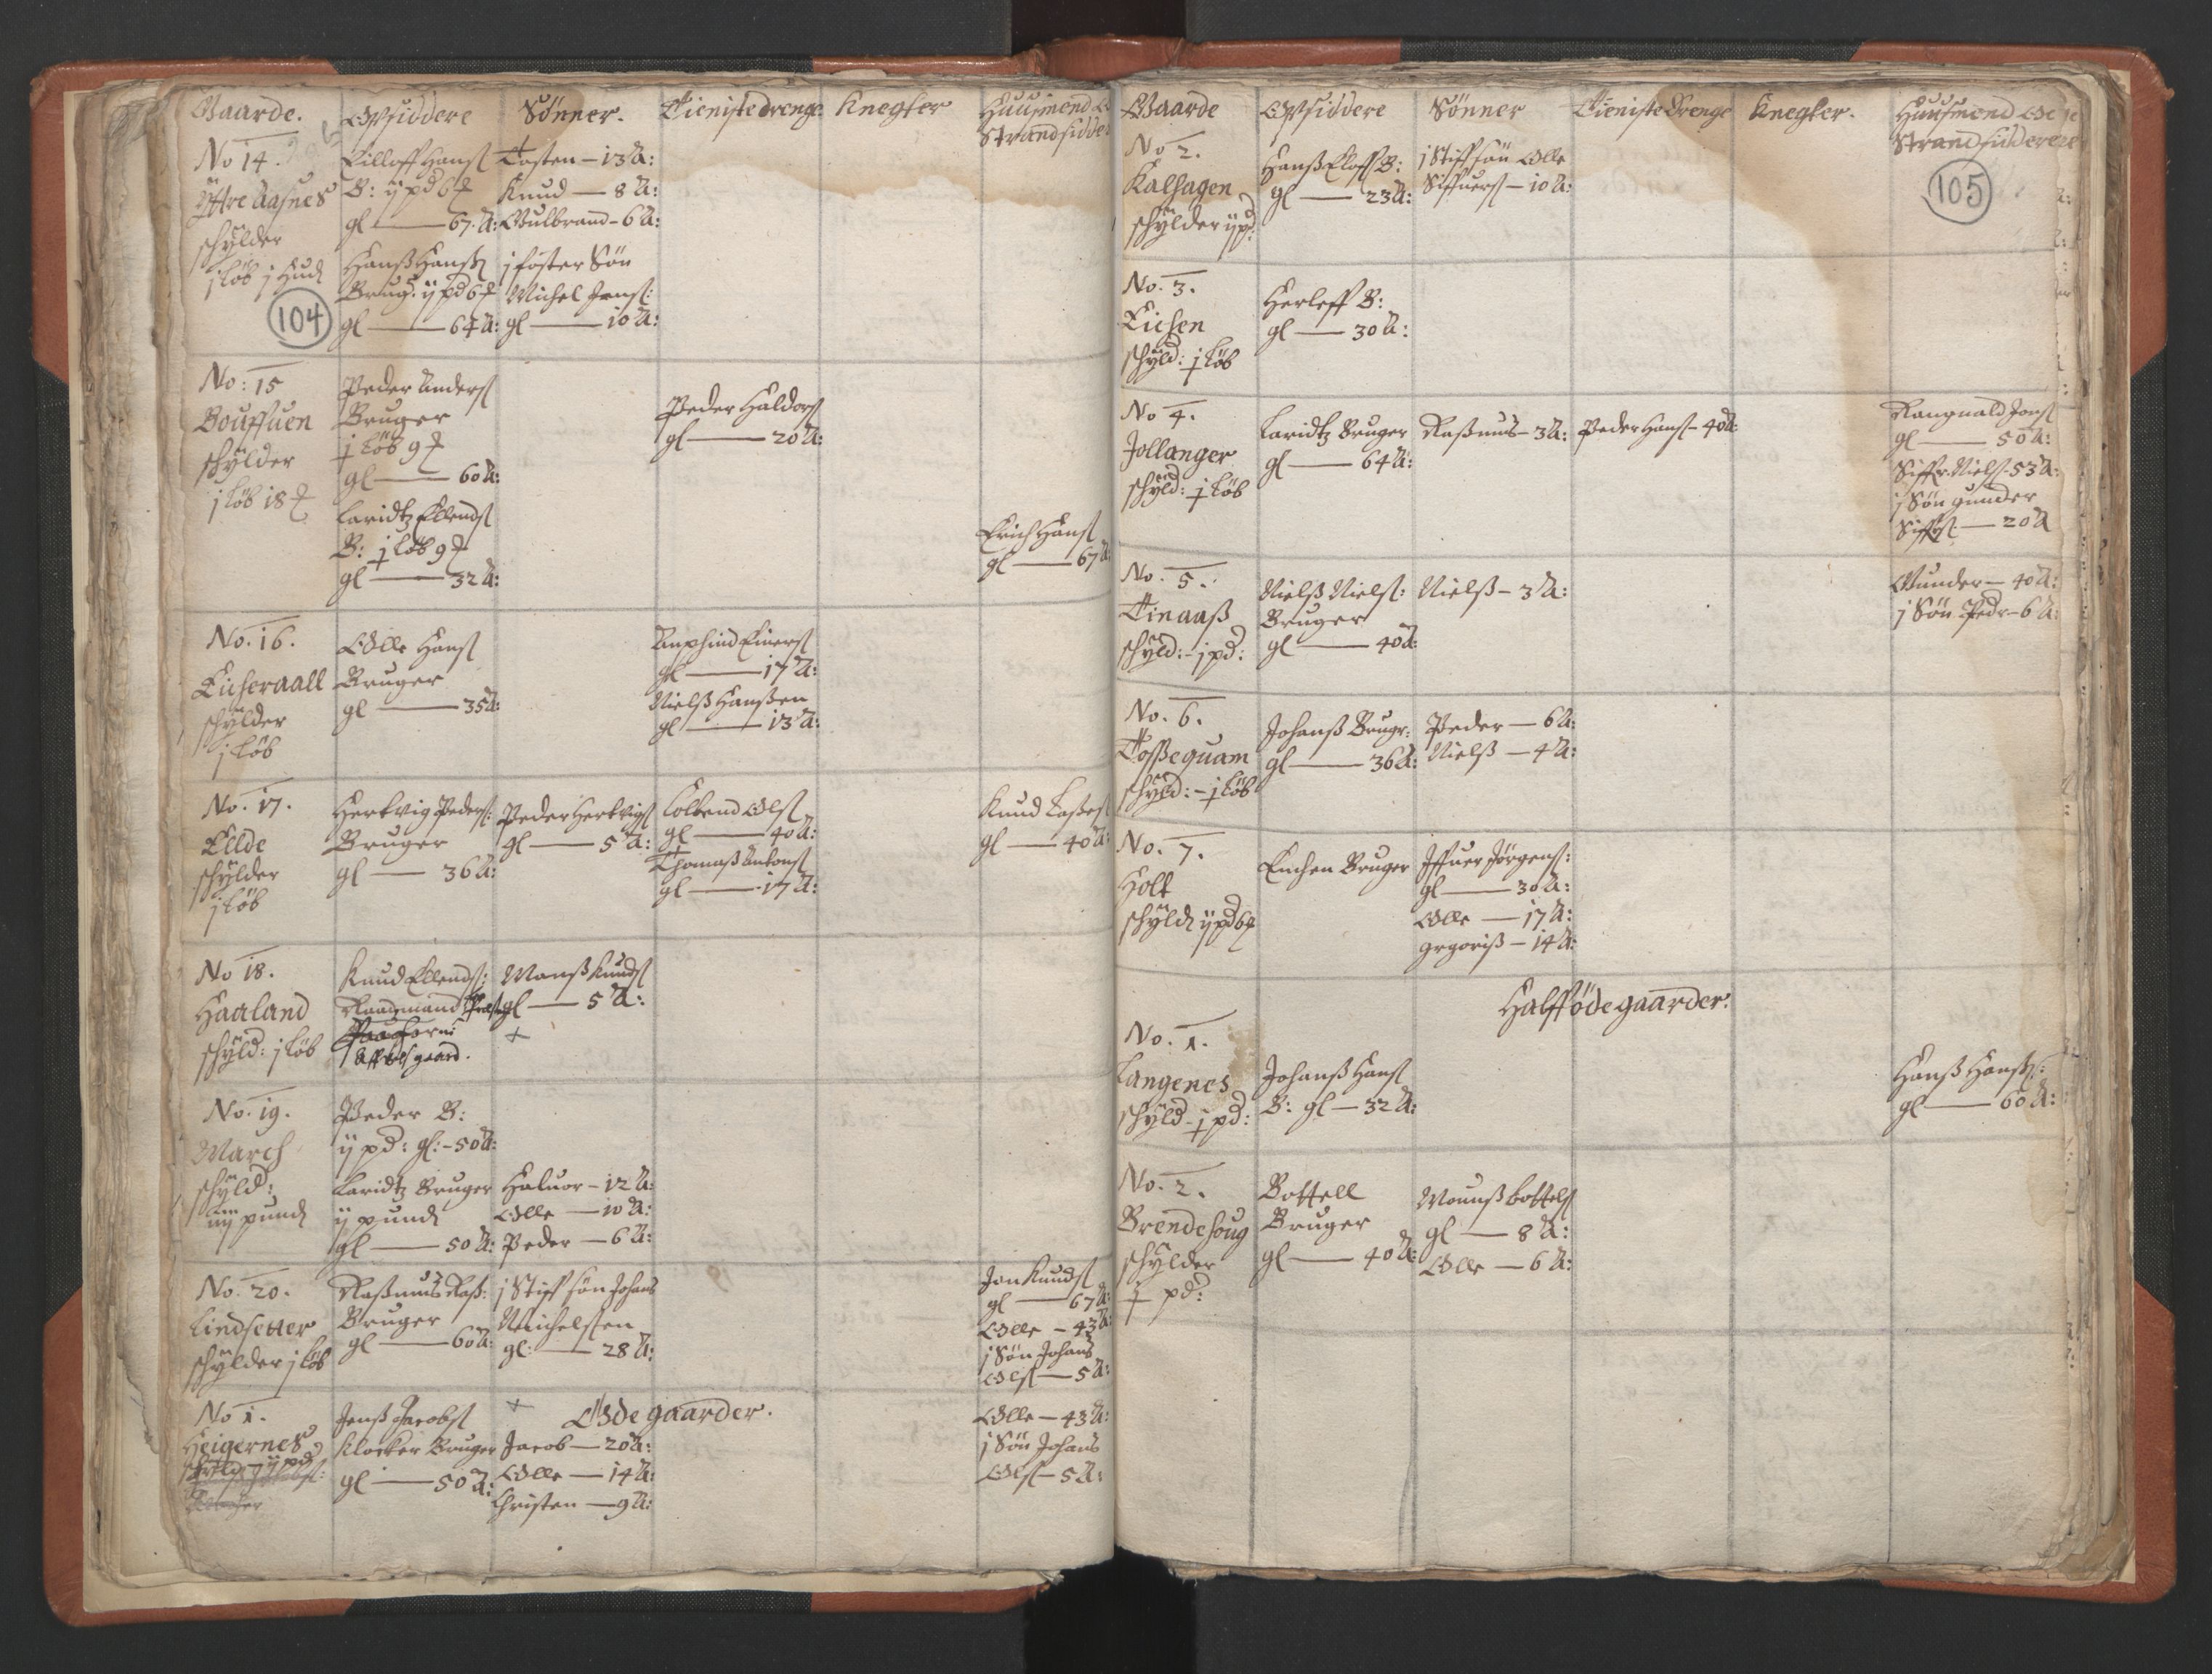 Gaarde. Opsiddere Sønner. Tienistedrenge Knegter Huusmend Oc
Strandsidder
No 14.
Yttre Aasnes
schylder
j løb j Hud
104
Eilloff Hanß
B: ij pd 6
gl — 67. A:
Hanß Hanß
Brug. ij pd 6
gl — 64 A:
Tosten — 13 A:
Knud — 8 A:
Gulbrand — 6 A:
j foster Søn
Michel Jenß:
gl — 10 A:
No: 15
Bouffuen
schylder
j løb 18
Peder Anderß
Bruger
j løb 9
gl — 60 A:
Laridtz Ellendß
B: j løb 9
gl — 32 A:
Peder Haldorß
gl — 20 A:
Erich Hanß
gl — 67 A:
No. 16.
Eicheraall
schylder
j løb
Olle Hanß
Bruger
gl — 35 A:
Anphind Einerß
gl — 17 A:
Nielß Hanßen
gl — 13 A:
No. 17.
Elde
schylder
j løb
Hertvig Pederß:
Bruger
gl — 36 A:
Peder Hertvigß
gl — 5 A:
Colbend Olß
gl — 40 A:
Thomaß Antonß
gl — 17 A:
Knud Laßeß
gl — 40 A:
No 18.
Haaland
schyld: j løb
Knud Ellendß:
Raadmand
Affvelsgaard.
Manß Knudß
gl — 5 A:
+
No. 19.
March
schyld:
iiij pund
Peder B:
ij pd: gl: — 50 A:
Laridtz Bruger
ij pund
gl — 50 A:
Haluor — 12 A:
Olle — 10 A:
Peder — 6 A:
No. 20.
Lindsetter
schylder j løb
Raßmus Raß:
Bruger
gl — 60 A:
j Stiff søn Johans
Michelssen
gl: — 28 A:
Jon Knudß
gl — 67 A:
Olle — 43 A:
j Søn Johans
Olß — 5 A:
+ Øde gaarder.
No 1.
Heigernes
Jenß Jacobß
Klocker Bruger
gl — 50 A:
Jacob — 20 A:
Olle — 14 A:
Christen — 9 A:
Olle — 43 A:
j Søn Johans
Olß — 5 A:
Gaarde Opsiddere Sønner Tieniste drenge Knegter. Huusmend Oc
Strandsidderere
105
No 2.
Kalhagen
schylder ij pd:
Hanß Eloff B:
gl — 23 A:
j Stiff søn Olle
Siffuerß — 10 A:
No. 3.
Eichen
schyld: j løb
Herleff B:
gl — 30 A:
No 4.
Jollanger
schyld: j løb
Laridtz Bruger
gl — 64 A:
Raßmus — 3 A:
Peder Hanß — 40 A:
Rangnald Jonß
gl — 50 A:
Siffr. Nielß. 53 A:
j Søn gunder
Siffrß — 20 A
No. 5.
Tinaaß
schyld: — j pd:
Nielß Nielß:
Bruger
gl — 40 A:
Nielß — 3 A:
Gunder — 40 A:
j Søn Pedr — 6 A:
No. 6.
Tosßequam
schyld: — j løb
Johanß Brugr:
gl — 36 A:
Peder — 6 A:
Nielß — 4 A:
No. 7.
Holt
schyld ij pd 6
Enchen Bruger
Iffuer Jørgenß:
gl — 30 A:
Olle — 17 A:
grgoriß — 14 A:
Halff øde gaarder.
No. 1.
Langenes
schyld — j pd:
Johanß Hanß
B: gl — 32 A:
Hanß Hanß:
gl — 60 A:
No. 2.
Brendehoug
schylder
j pd:
Bottell
Bruger
gl — 40 A:
Mounß bottelß
gl — 8 A:
Olle — 6 A: